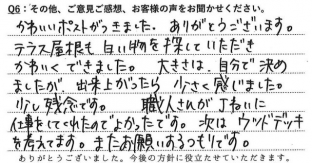 Q6：その他、ご意見ご感想、お客様の声をお聞かせください。
かわいいポストがつきました。ありがとうございます。
テラス屋根も白い物を探していただき
かわいくできました。大きさは、自分で決め
ましたが、出来上がったら小さく感じました。
少し残念です。職人さんが丁ねいに
仕事をしてくれたのでよかったです。次はウッドデッキ
を考えてます。またお願いするつもりです。
ありがとうございました。今後の方針に役立たせていただきます。